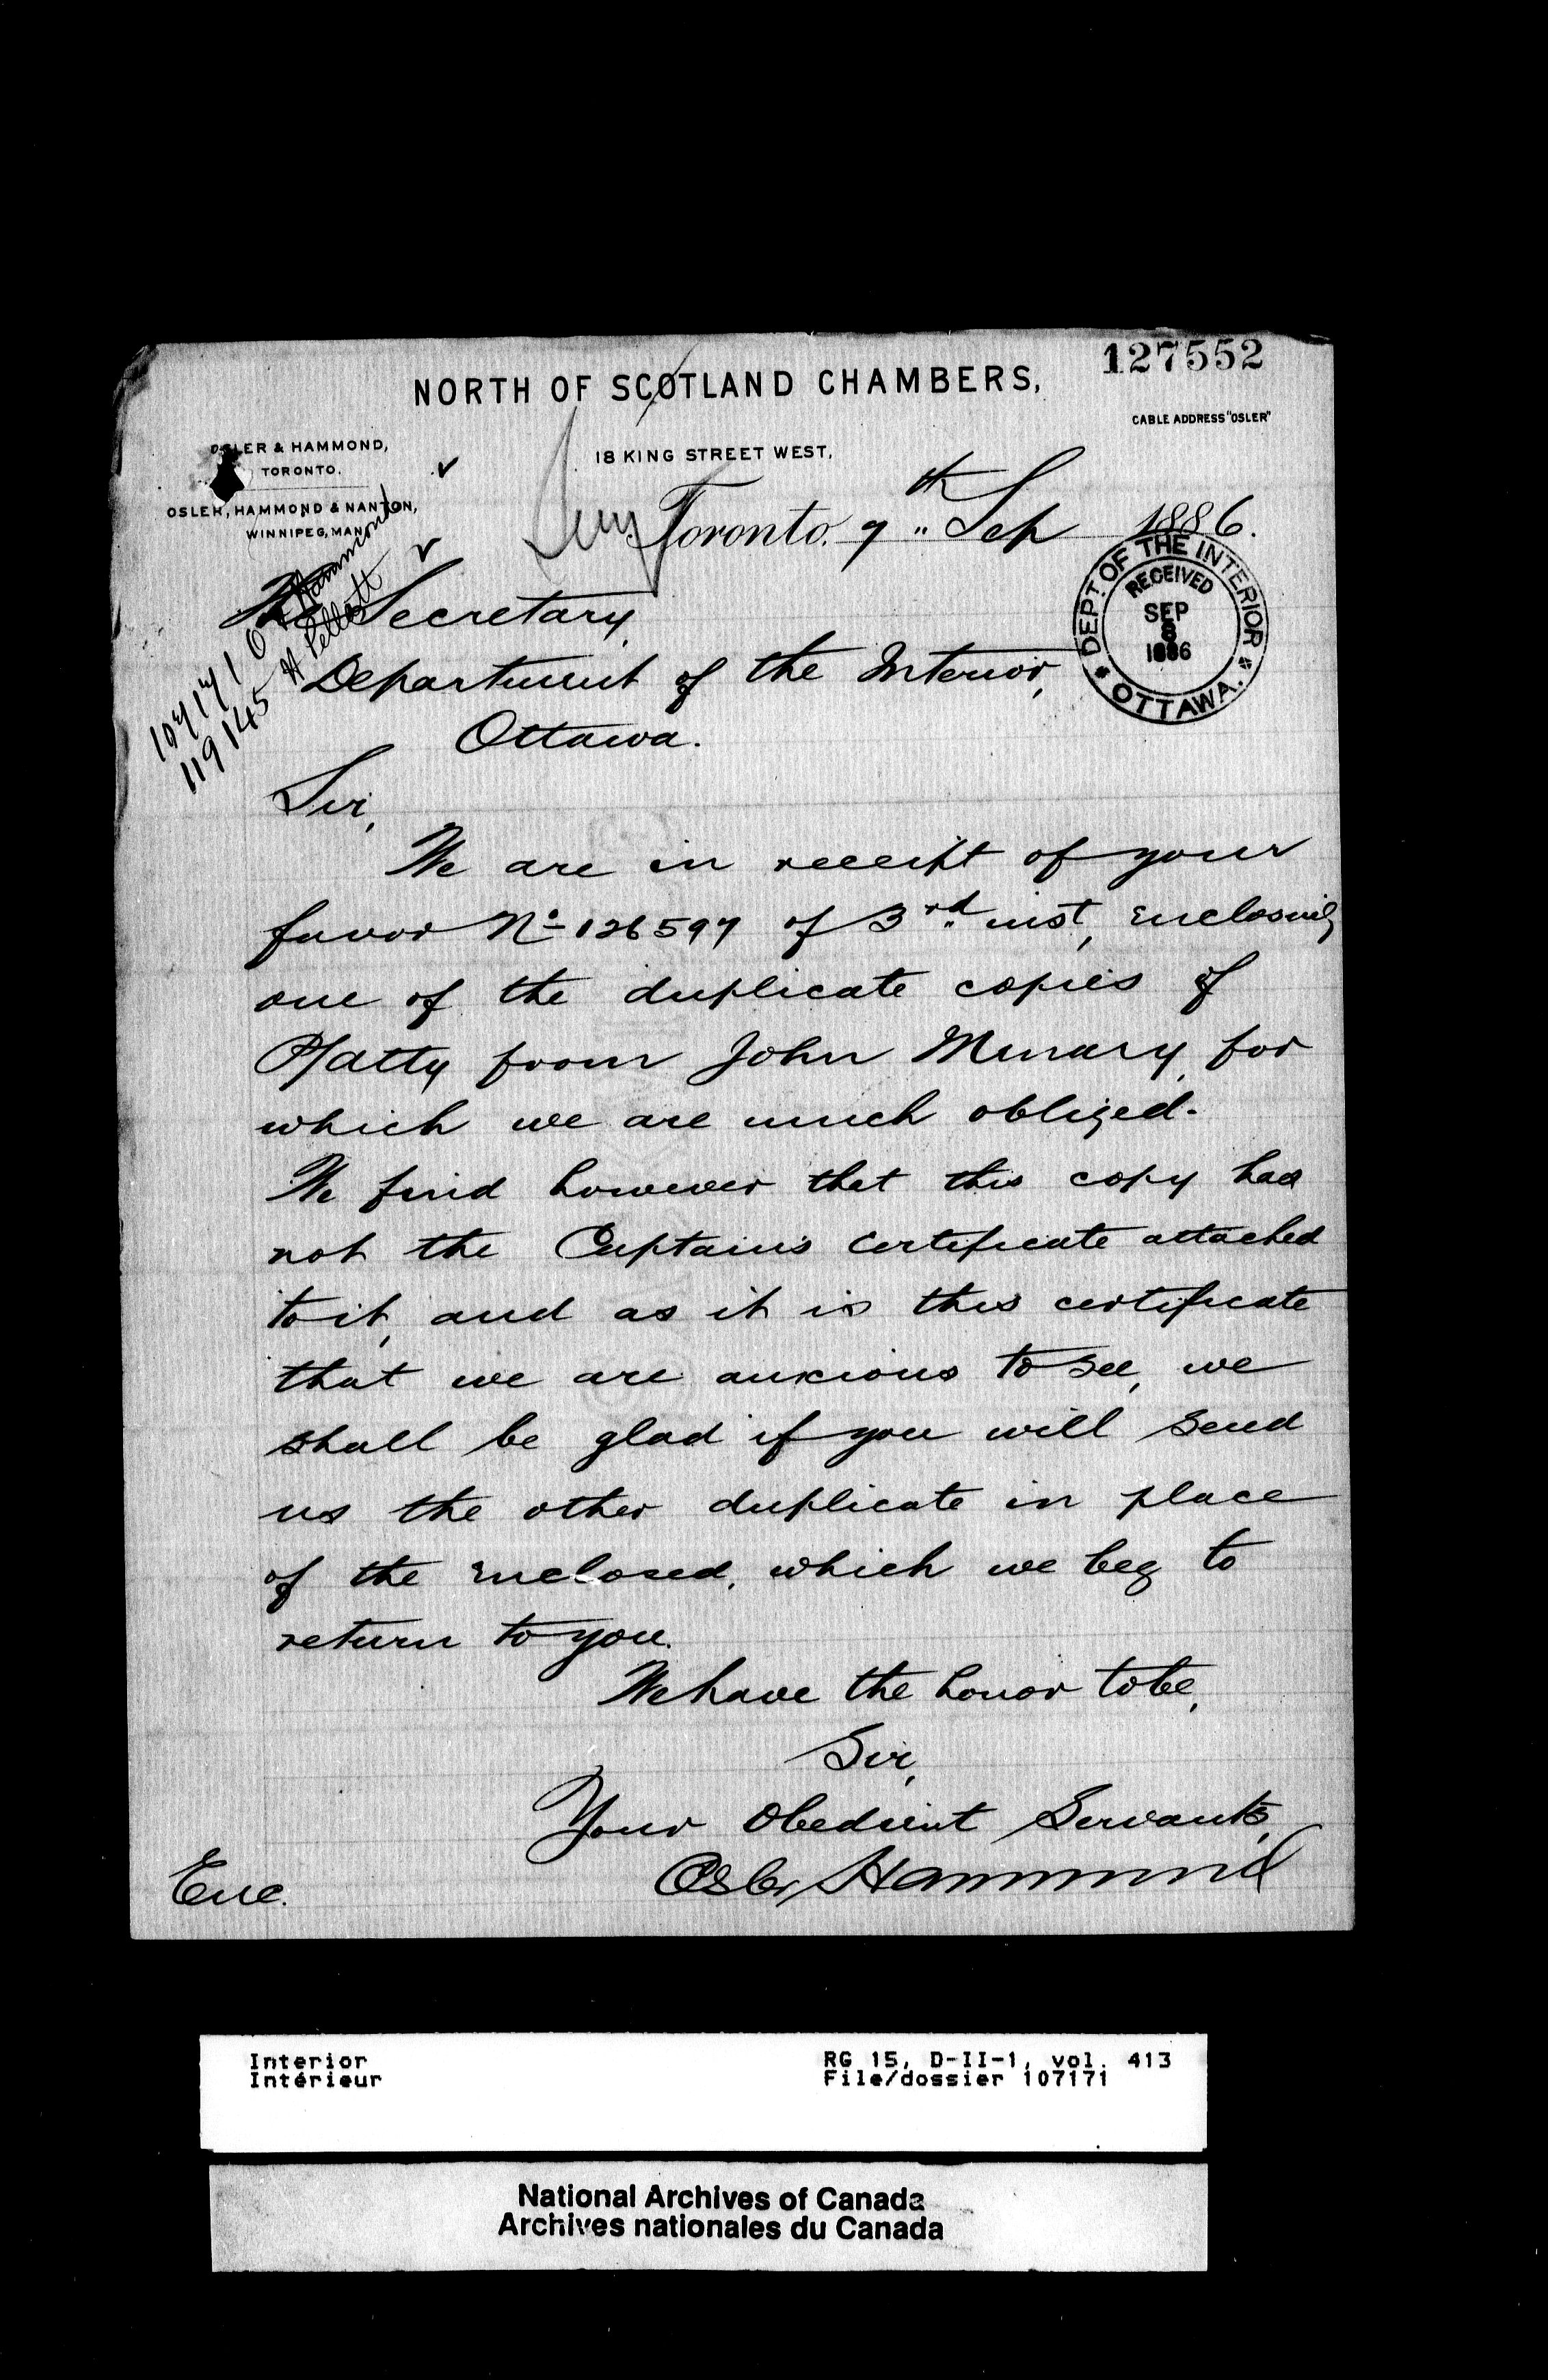 127552
NORTH OF SCOTLAND CHAMBERS,
CABLE ADDRESS "OSLER"
OSLER & HAMMOND,
TORONTO.
18 KING STREET WEST,
OSLER, HAMMOND & NANTON,
WINNIPEG, MAN.
Toronto, 7th Sep 1886.
DEPT. OF THE INTERIOR
RECEIVED
SEP
8
1886
OTTAWA.
107171 O & Hammond
119145 H Pellatt
The Secretary,
Department of the Interior,
Ottawa.
Sir,
We are in receipt of your
favor No 126597 of 3rd inst, enclosing
one of the duplicate copies of
from John
for
which we are much obliged.
We find however that this copy has
not the Captain's certificate attached
to it, and as it is this certificate
that we are anxious to see, we
shall be glad if you will send
us the other duplicate in place
of the enclosed, which we beg to
return to you.
We have the honor to be,
Sir,
Your Obedient Servants,
Osler Hammond
Enc.
Interior
Intérieur
RG 15, D-II-1, vol. 413
File/dossier 107171
National Archives of Canada
Archives nationales du Canada